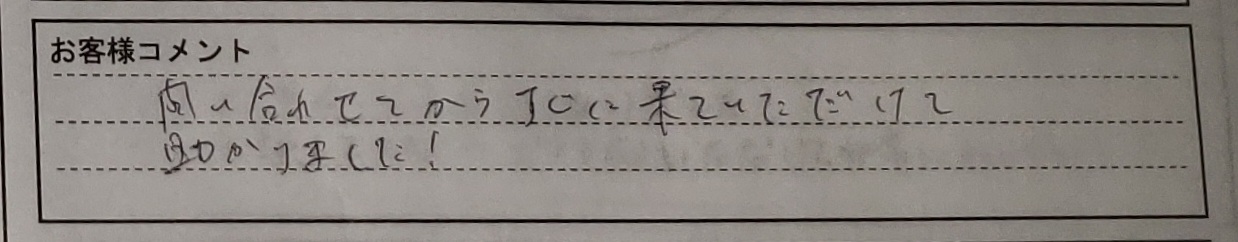 お客様コメント
問い合わせてからすぐに来ていただけて
助かりました!